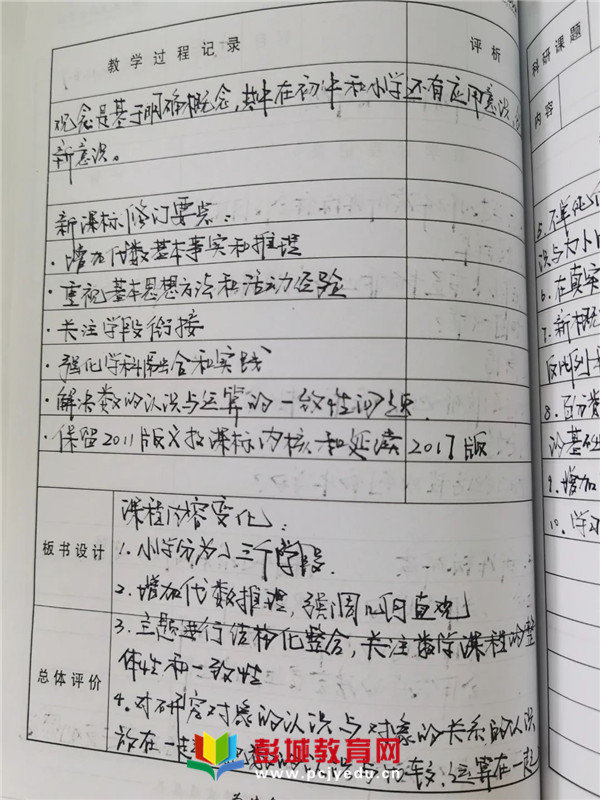 教学过程记录 评析
观念是基于明确概念，其中在初中和小学还有应用意识、
新意识。
新课标修订要点：
·增加代数基本事实和推理
·重视基本思想方法和活动经验
·关注学段衔接
·强化学科融合和实践
·解决数的认识与运算的一致性问题
·保留2011版义教课标内核和延续2017版
板书设计
课程内容变化：
1.小学分为三个学段
2.增加代数推理，强调几何直观
总体评价
3.主题进行结构化整合，关注数学课程的整
体性和一致性
4.对研究对象的认识与对象的关系的认识
放在一起 运算在一起
彭城教育网
www.pcjyedu.cn
科研课题
内容
识与大小
6.在真实
7.新概
反比例
8.百分数
的基础
9.增加
10.学习